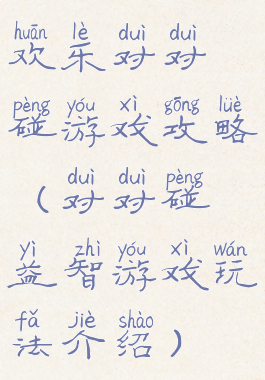 huān lè duì duì
欢乐对对
pèng yóu xì gōng lüè
碰游戏攻略
duì duì pèng
（对对碰
yì zhì yóu xì wán
益智游戏玩
fǎ jiè shào
法介绍）